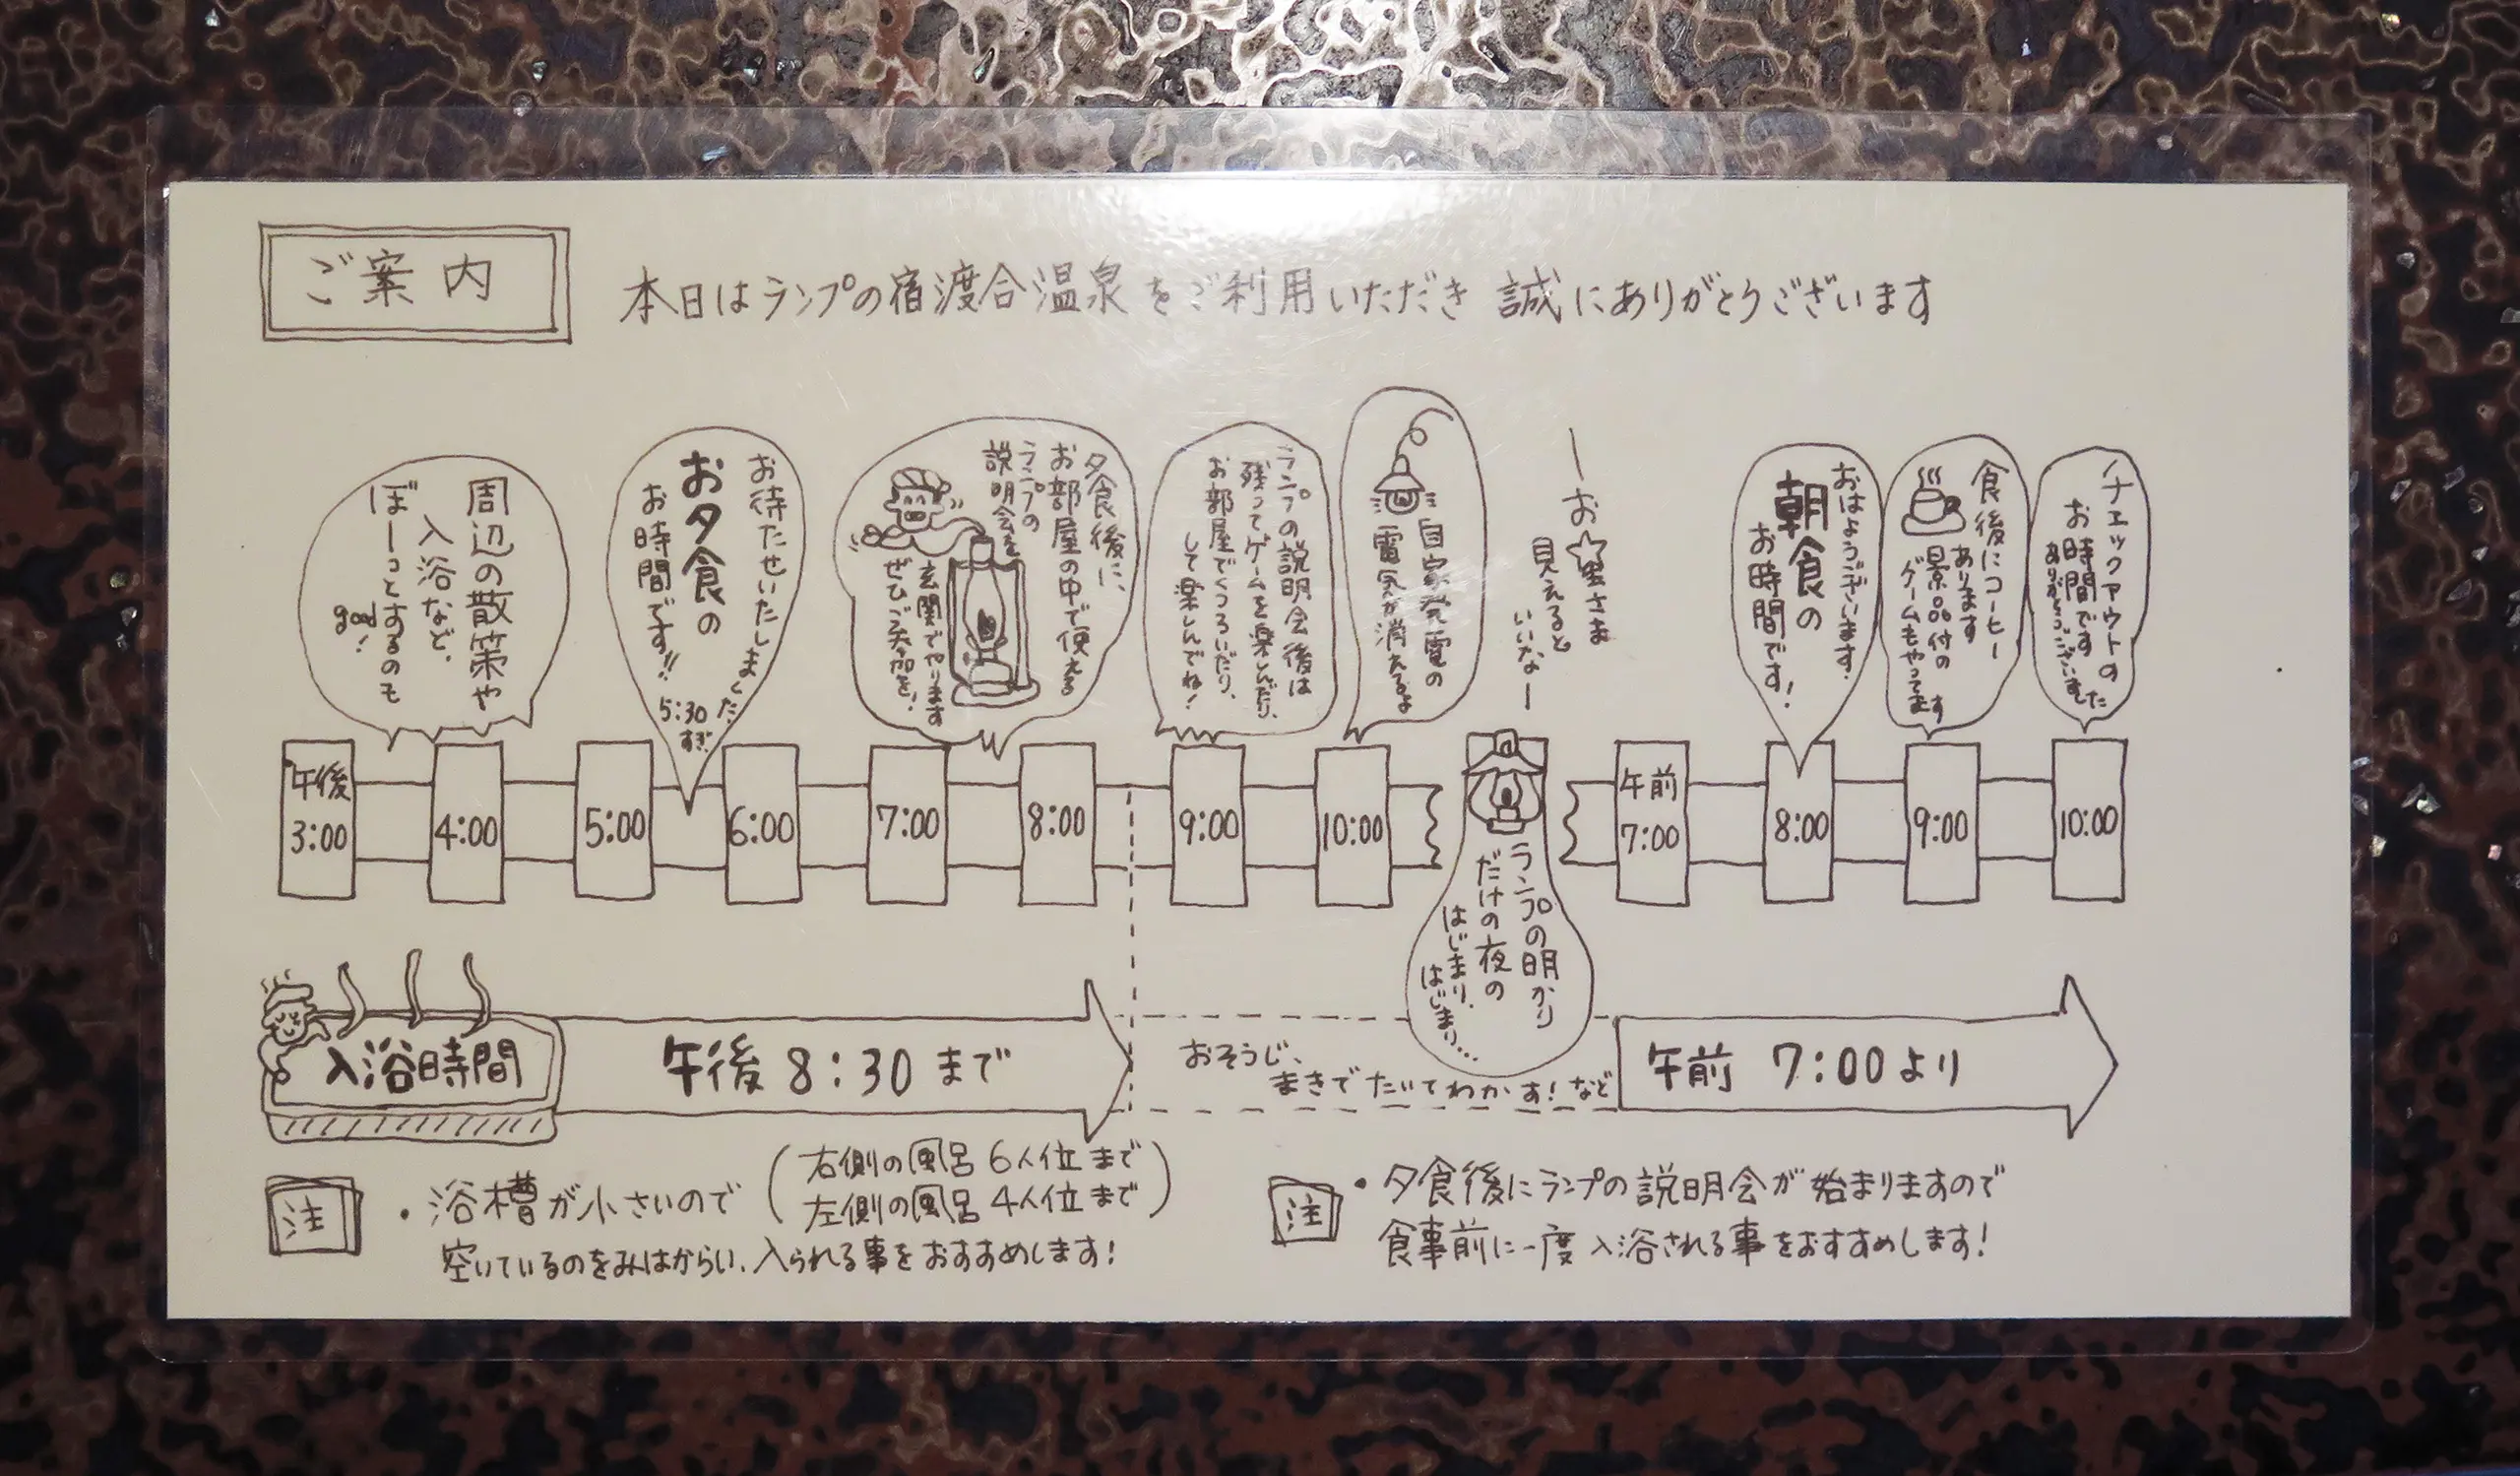 ご案内
本日はランプの宿渡合温泉をご利用いただき 誠にありがとうございます
周辺の散策や
入浴など、
ぼーっとするのも
good!
お待たせいたしました
お夕食の
お時間です!!
5:30
すぎ
夕食後に、
お部屋の中で使える
ランプの
説明会を
玄関でやります
ぜひご参加を!
ランプの説明会後は
残ってゲームを楽しんだり、
お部屋でくつろいだり、
して楽しんでね!
自家発電の
電気が消えるよ
ーお☆星さま
見えると
いいなー
おはようございます。
朝食の
お時間です!
食後にコーヒー
あります
景品付の
ゲームもやってます
チェックアウトの
お時間です
ありがとうございました
午後
3:00
4:00
5:00
6:00
7:00
8:00
9:00
10:00
午前
7:00
8:00
9:00
10:00
ランプの明かり
だけの夜の
はじまり、
はじまり…
入浴時間
午後 8:30 まで
おそうじ、
まきでたいてわかす!など
午前 7:00 より
注
・浴槽が小さいので
(右側の風呂 6人位まで
左側の風呂 4人位まで)
空いているのをみはからい、入られる事をおすすめします!
注
・夕食後にランプの説明会が始まりますので
食事前に一度入浴される事をおすすめします!